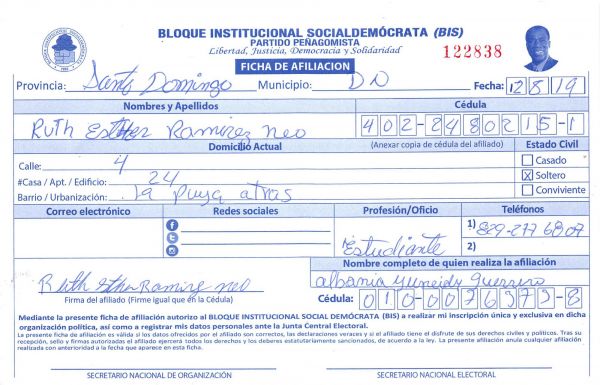 BLOQUE INSTITUCIONAL SOCIALDEMÓCRATA (BIS)
PARTIDO PEÑAGOMISTA
Libertad, Justicia, Democracia y Solidaridad
122838
FICHA DE AFILIACION
Provincia: Santo Domingo Municipio: DN Fecha: 12 8 19
Nombres y Apellidos Cédula
Ruth Esther Ramirez neo 402-2480215-1
Domicilio Actual (Anexar copia de cédula del afiliado) Estado Civil
Calle: 4 Casado
#Casa / Apt. / Edificio: 24 X Soltero
Barrio / Urbanización: la puya atras Conviviente
Correo electrónico Redes sociales Profesión/Oficio Teléfonos
Estudiante 1) 829-277 6807
2)
Nombre completo de quien realiza la afiliación
Ruth esther Ramirez neo albania yuneidy guerrero
Firma del afiliado (Firme igual que en la Cédula) Cédula: 010-0026373-8
Mediante la presente ficha de afiliación autorizo al BLOQUE INSTITUCIONAL SOCIAL DEMÓCRATA (BIS) a realizar mi inscripción única y exclusiva en dicha
organización política, así como a registrar mis datos personales ante la Junta Central Electoral.
La presente ficha de afiliación es válida si los datos ofrecidos por el afiliado son correctos, las declaraciones veraces y si el afiliado tiene el disfrute de sus derechos civiles y políticos. Tras su
recepción, sello y firmas autorizadas el afiliado ejercerá todos los derechos y los deberes estatutariamente sancionados, de acuerdo a la ley. La presente afiliación anula cualquier afiliación
realizada con anterioridad a la fecha que aparece en esta ficha.
SECRETARIO NACIONAL DE ORGANIZACIÓN SECRETARIO NACIONAL ELECTORAL